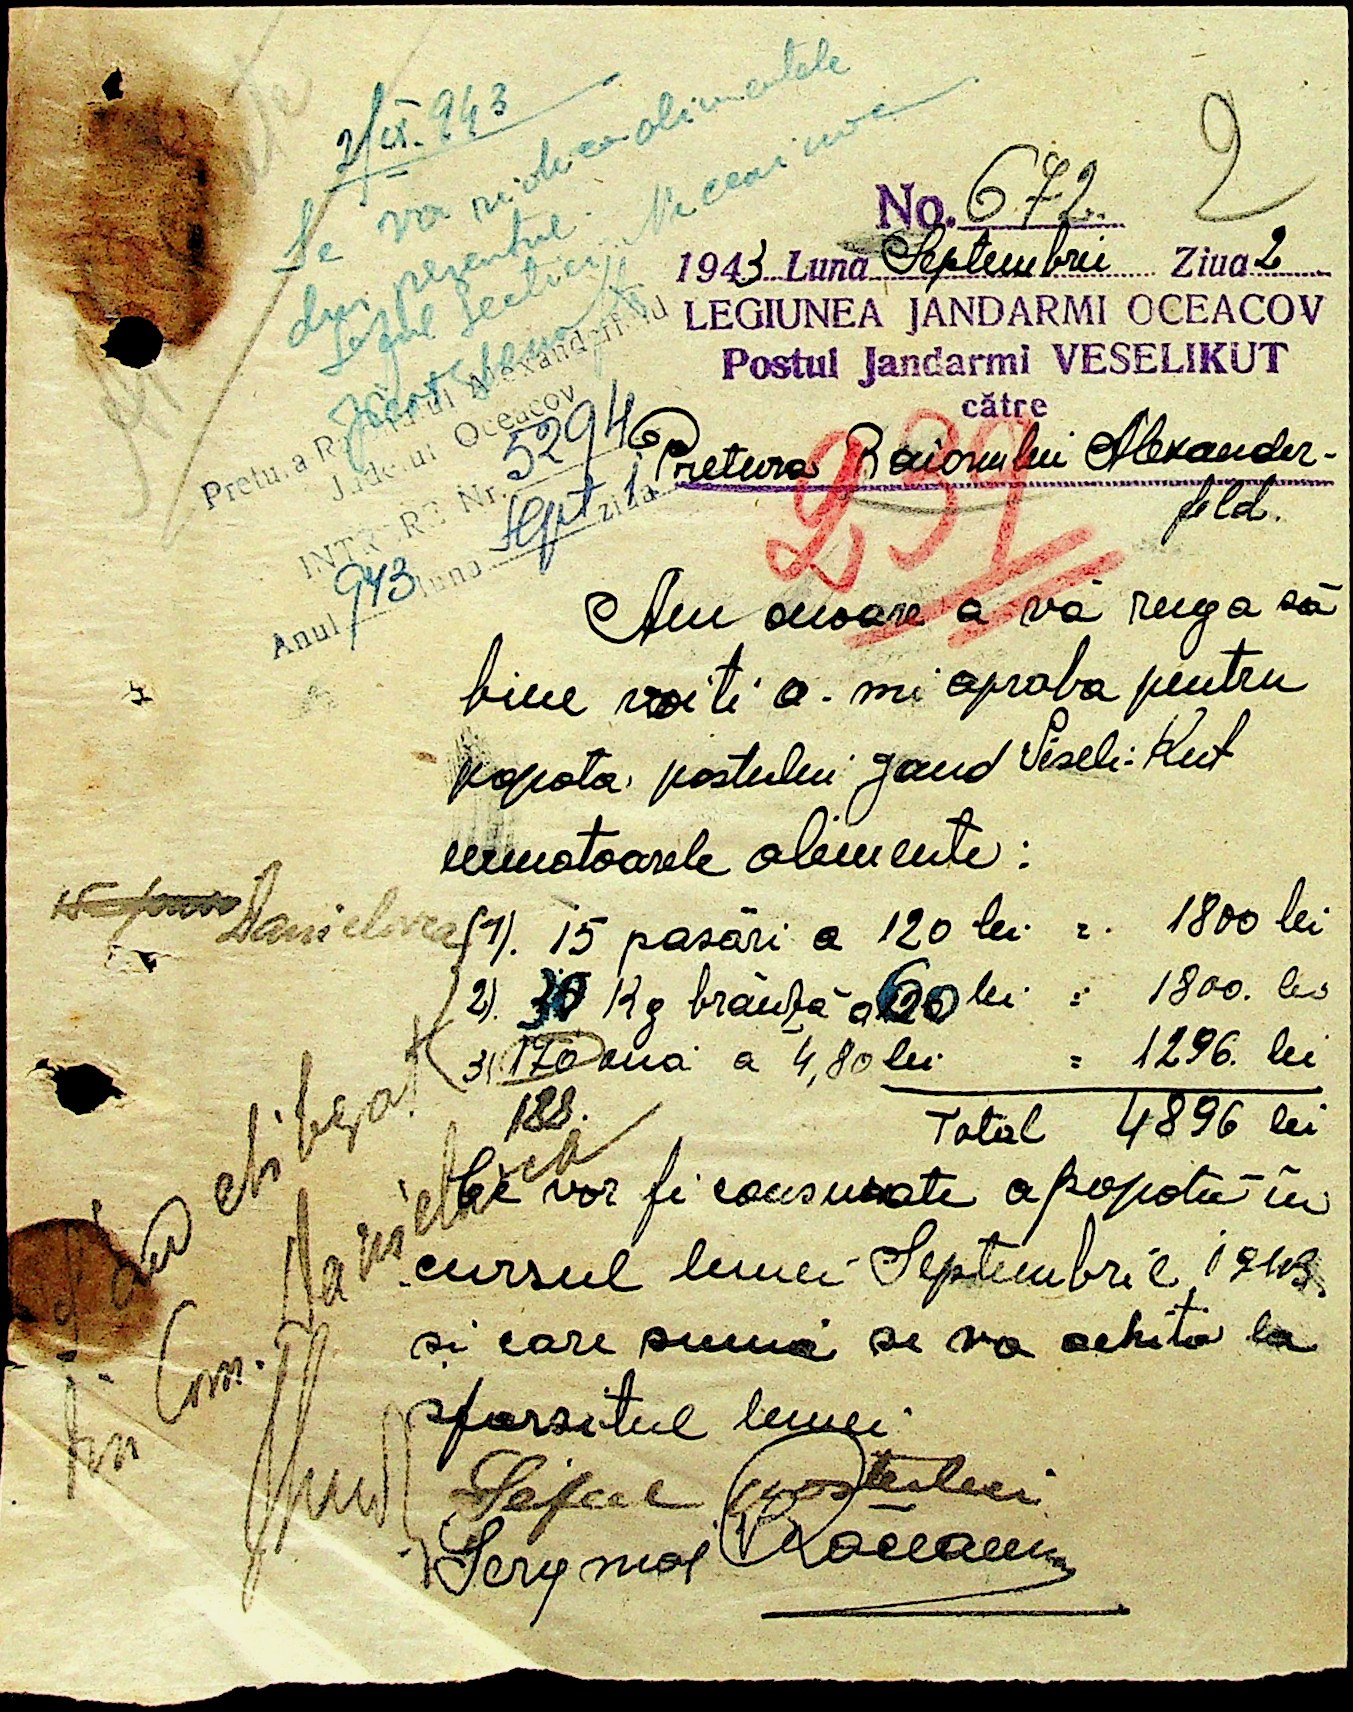 2/IX. 943
Se va ridica alimentele
din prezentul.
Șeful Secției
2
No. 672.
1943 Luna Septembrii Ziua 2
LEGIUNEA JANDARMI OCEACOV
Postul Jandarmi VESELIKUT
către
Pretura Raionului Alexander-
feld.
239
Pretura Raionului Alexanderfeld
Județul Oceacov
INTRARE Nr. 5294
Anul 943 luna Sept ziua
Am onoare a vă ruga să
bine voiti a-mi aproba pentru
popota postului jand Veseli-Kut
urmatoarele alimente:
Danielovca
1). 15 pasări a 120 lei = 1800 lei
2). 30 Kg brânză a 60 lei = 1800. lei
3). 170 ouă a 4,80 lei = 1296. lei
188.
Total 4896 lei
Ce vor fi consumate a popotă în
cursul lunei Septembrie 1943.
și care sumă se va achita la
sfarsitul lunei.
Șeful postului
Serg maj
s'au eliberat
din Com. Danielovca